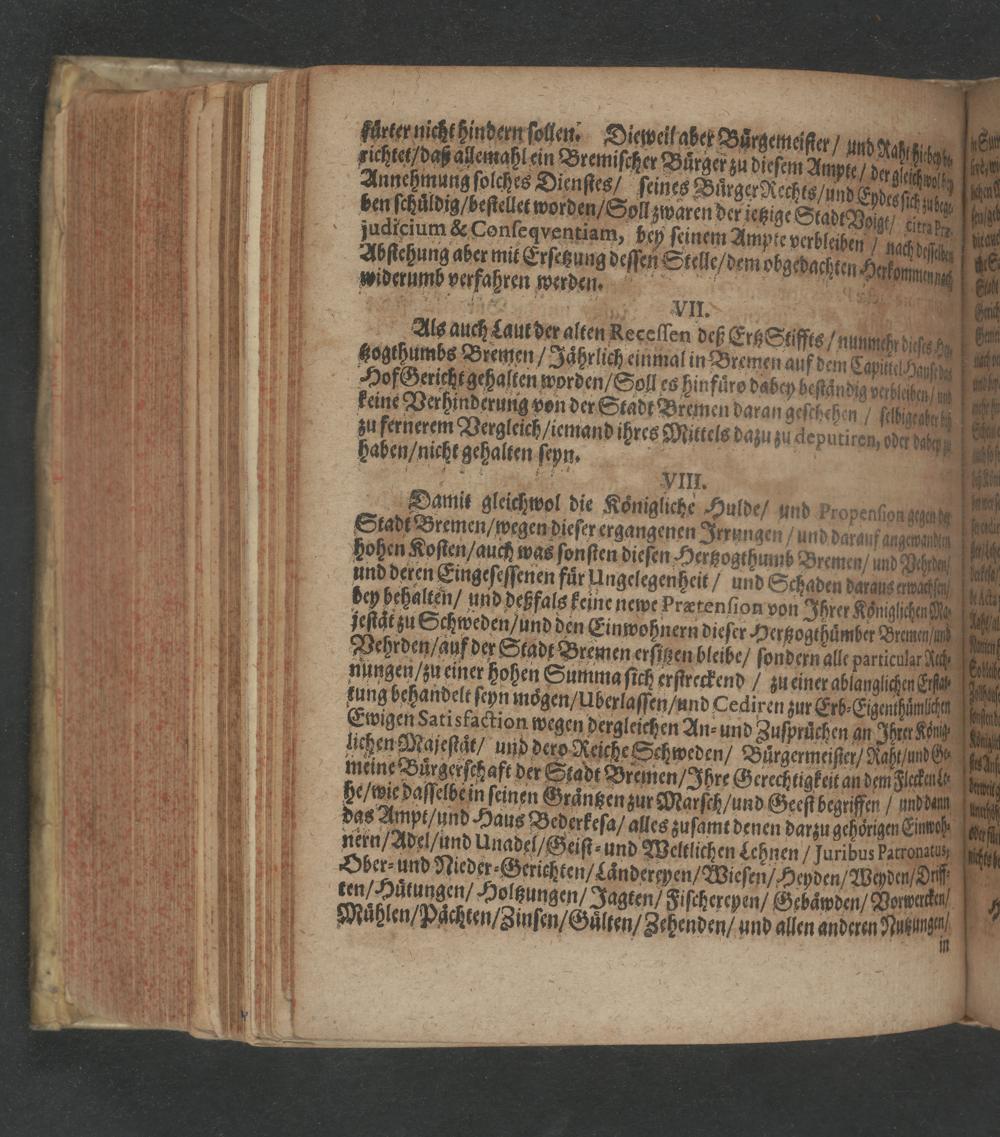 fürter nicht hindern sollen. Dieweil aber Bürgemeister / und Raht hiebey be-
richtet/daß allemahl ein Bremischer Bürger zu diesem Ampte / der gleichwol bey
Annehmung solches Dienstes/ seines BürgerRechts/und Eydes sich zu bege-
ben schüldig/bestellet worden/Soll zwaren der ietzige StadtVoigt/ citra Præ-
judicium & Conseqventiam, bey seinem Ampte verbleiben / nach desselben
Abstehung aber mit Ersetzung dessen Stelle/dem obgedachten Herkommen nach
widerumb verfahren werden.
VII.
Als auch Laut der alten Recessen deß ErtzStiffts / nunmehr dieses Her-
tzogthumbs Bremen / Jährlich einmal in Bremen auf dem Capittel-Hause das
HofGericht gehalten worden/Soll es hinfüro dabey beständig verbleiben/ und
keine Verhinderung von der Stadt Bremen daran geschehen / selbige aber biß
zu fernerem Vergleich/iemand ihres Mittels dazu zu deputiren, oder dabey zu
haben/nicht gehalten seyn.
VIII.
Damit gleichwol die Königliche Hulde/ und Propension gegen der
Stadt Bremen/wegen dieser ergangenen Irrungen / und darauf angewandten
hohen Kosten/auch was sonsten diesen Hertzogthumb Bremen/ und Vehrden/
und deren Eingesessenen für Ungelegenheit / und Schaden daraus erwachsen/
bey behalten/ und deßfals keine newe Prætension von Ihrer Königlichen Ma-
jestät zu Schweden/und den Einwohnern dieser Hertzogthümber Bremen/und
Vehrden/auf der Stadt Bremen ersitzen bleibe/ sondern alle particular Rech-
nungen/zu einer hohen Summa sich erstreckend / zu einer ablanglichen Erstat-
tung behandelt seyn mögen/Uberlassen/und Cediren zur Erb-Eigenthümlichen
Ewigen Satisfaction wegen dergleichen An- und Zusprüchen an Ihrer König-
lichen Majestät/ und dero Reiche Schweden/ Bürgermeister/ Raht/und Ge-
meine Bürgerschaft der Stadt Bremen/Ihre Gerechtigkeit an dem Flecken Le-
he/wie dasselbe in seinen Gräntzen zur Marsch/und Geest begriffen / und dann
das Ampt/und Haus Bederkesa/ alles zusamt denen darzu gehörigen Einwoh-
nern/Adel/und Unadel/Geist- und Weltlichen Lehnen / Juribus Patronatus,
Ober- und Nieder-Gerichten/Ländereyen/Wiesen/Heyden/Weyden/Drif-
ten/Hütungen/ Holtzungen/ Jagten/ Fischereyen/ Gebäwden/ Vorwercken/
Mühlen/Pächten/Zinsen/Gülten/Zehenden/ und allen anderen Nutzungen/
in